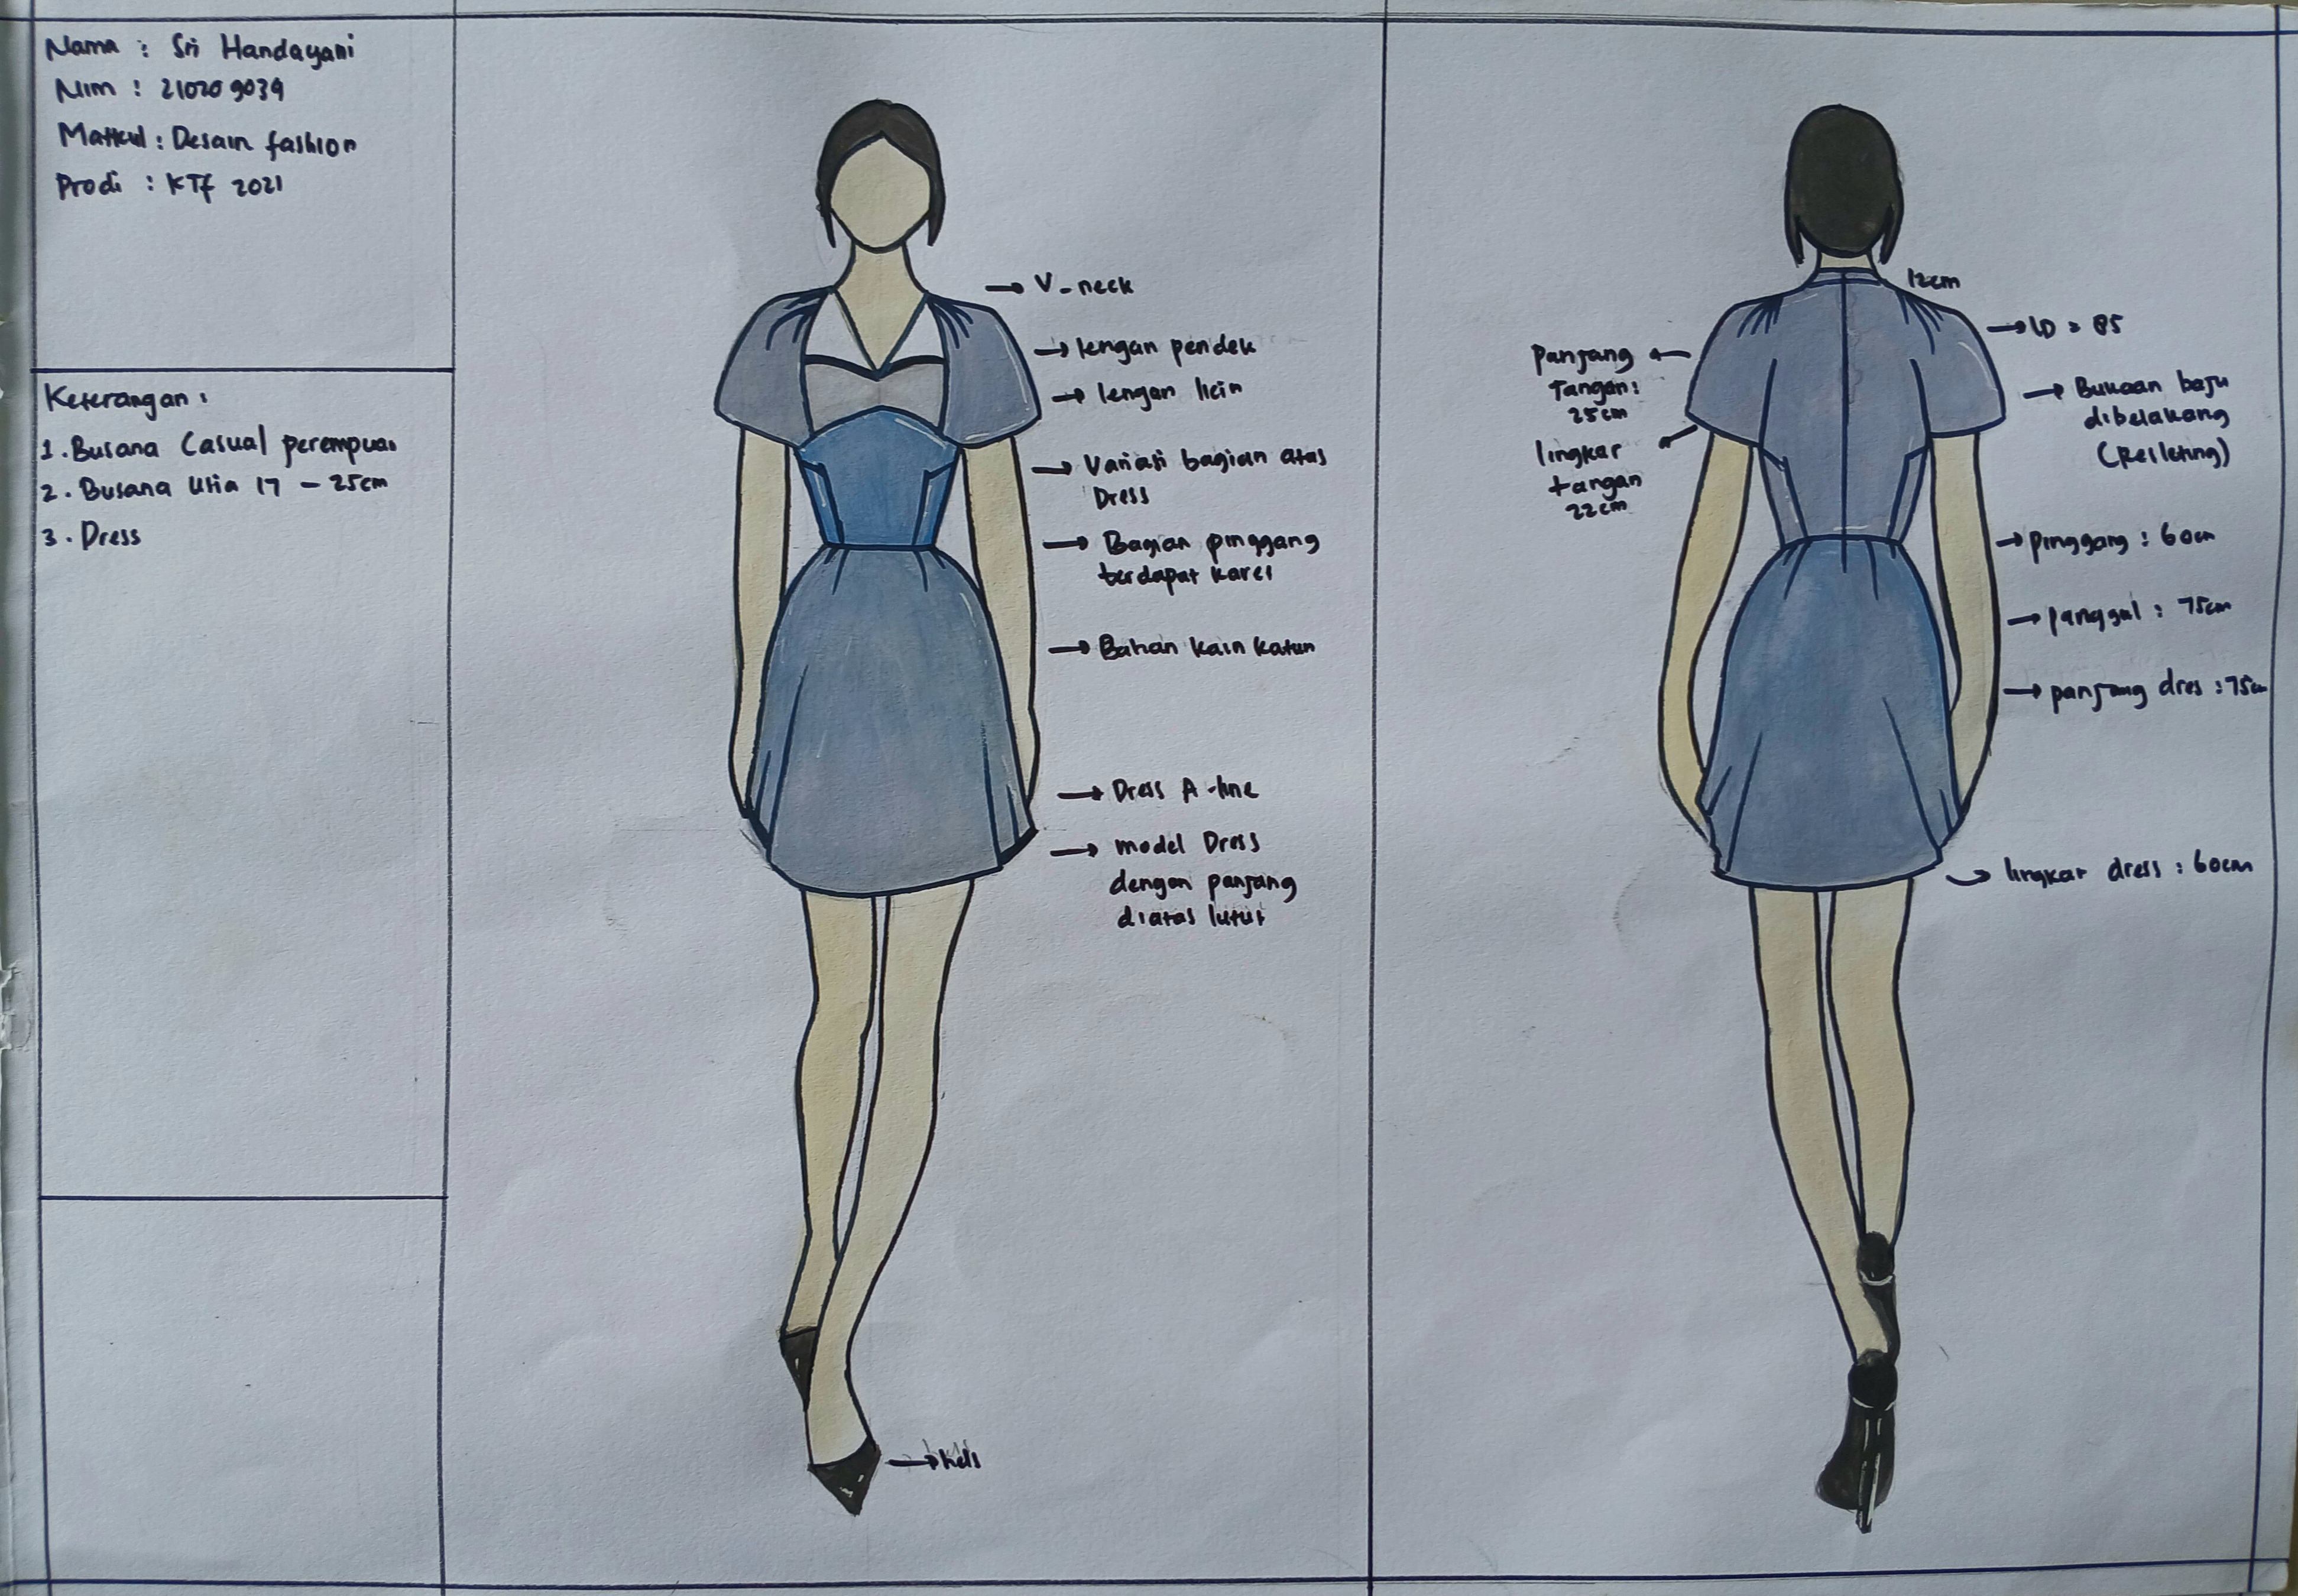 Nama : Sri Handayani
Nim : 210209039
Matkul : Desain fashion
Prodi : KTf 2021
Keterangan :
1. Busana Casual perempuan
2. Busana Usia 17 - 25cm
3. Dress
→ V-neck
→ lengan pendek
→ lengan licin
→ Variasi bagian atas
Dress
→ Bagian pinggang
terdapat karet
→ Bahan kain katun
→ Dress A-line
→ model Dress
dengan panjang
diatas lutut
→ hels
12cm
→ LD = 85
panjang ←
Tangan :
25cm
lingkar
tangan
22cm
→ Bukaan baju
dibelakang
(Resleting)
→ pinggang : 60cm
→ panggul : 75cm
→ panjang dres : 75cm
→ lingkar dress : 60cm